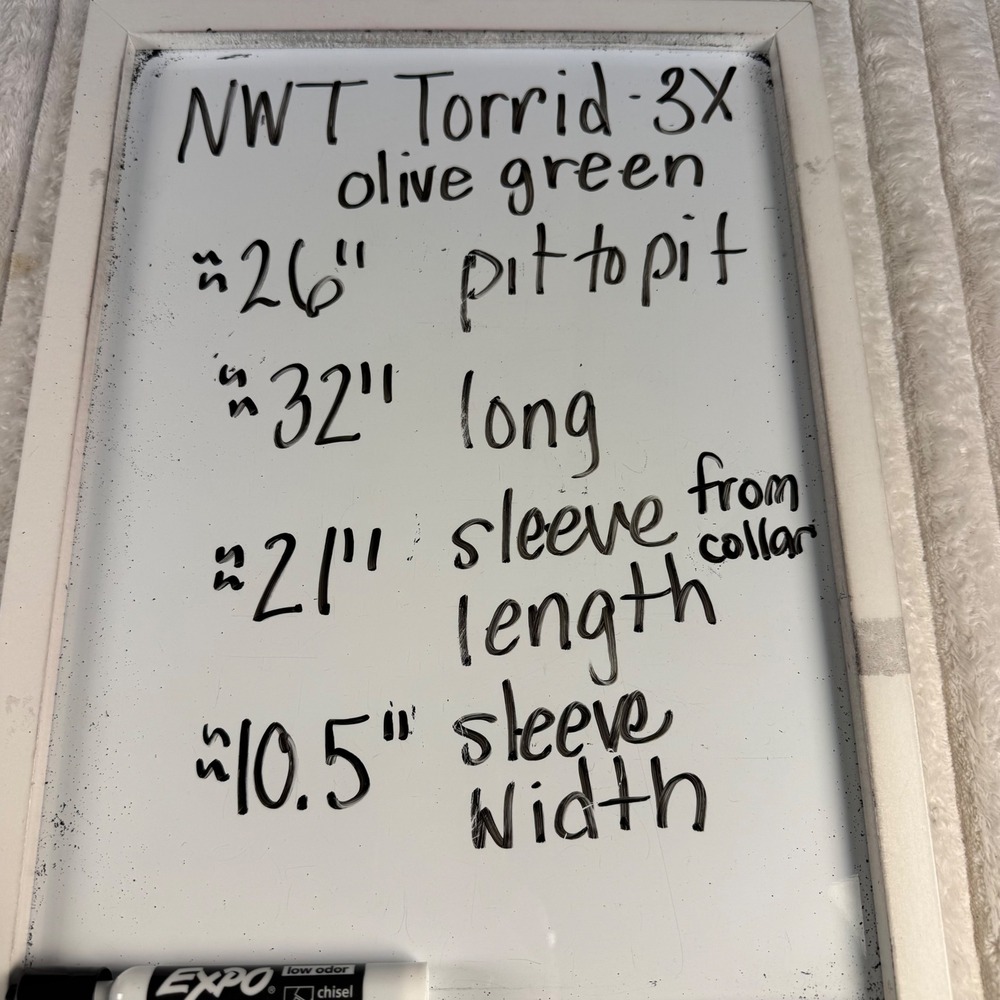 NWT Torrid - 3X
olive green
≈26" pit to pit
≈32" long
≈21" sleeve from
collar
length
≈10.5" sleeve
width
EXPO® low odor
chisel